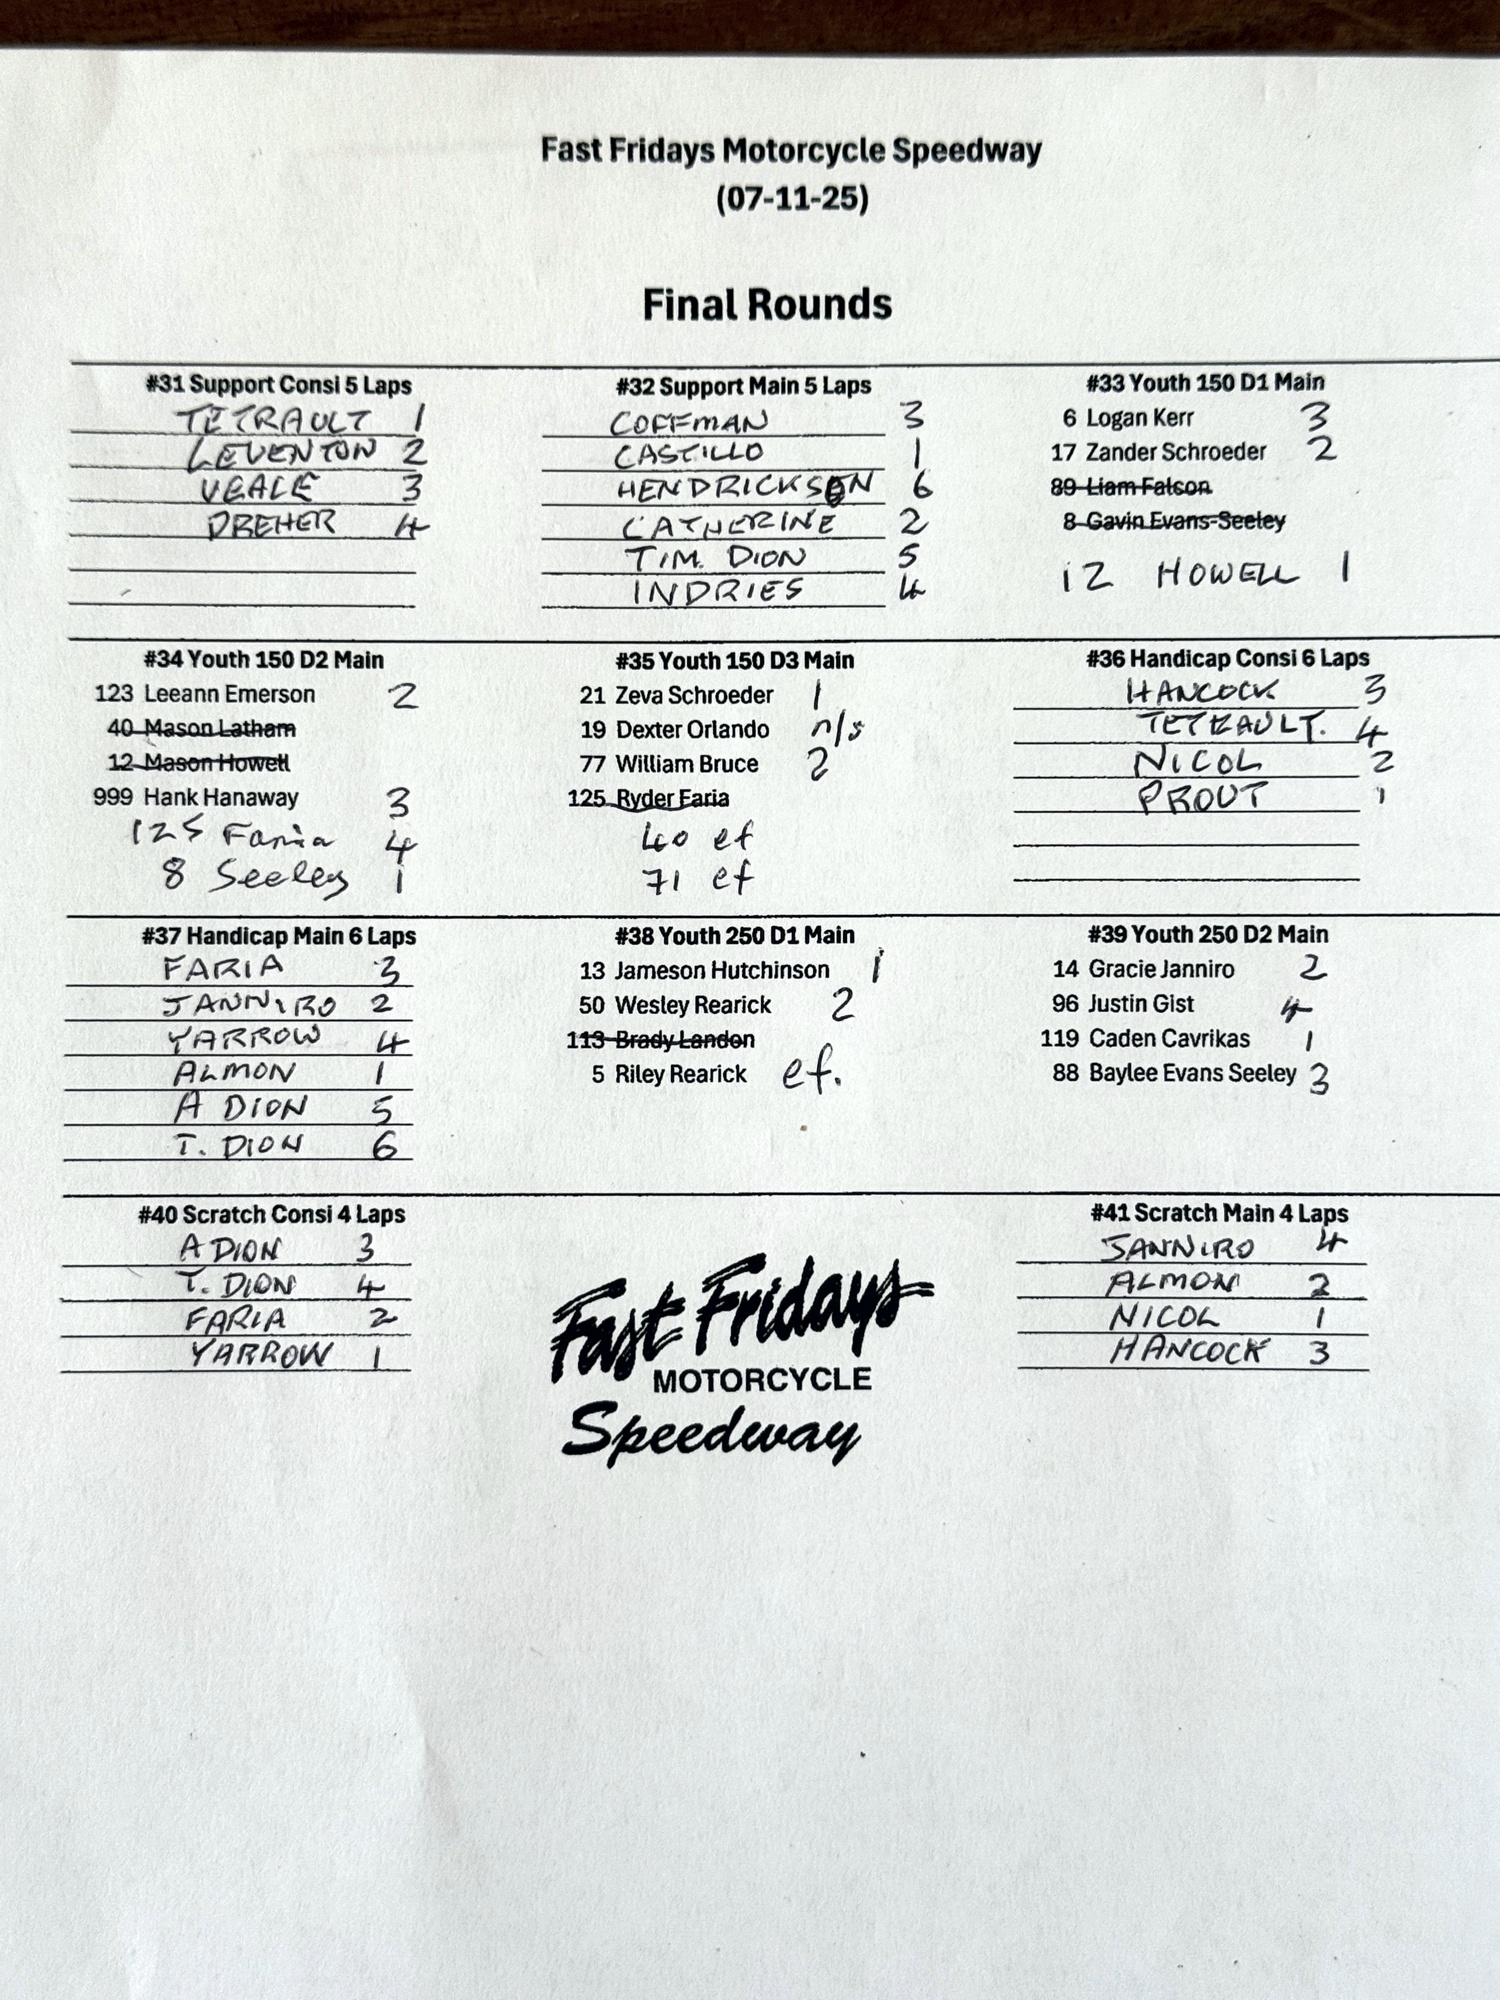 Fast Fridays Motorcycle Speedway
(07-11-25)
Final Rounds
#31 Support Consi 5 Laps
TETRAULT 1
LEVENTON 2
VEALE 3
DREHER 4
#32 Support Main 5 Laps
COFFMAN 3
CASTILLO 1
HENDRICKSEN 6
CATHERINE 2
TIM. DION 5
INDRIES 4
#33 Youth 150 D1 Main
6 Logan Kerr 3
17 Zander Schroeder 2
89 Liam Falson
8 Gavin Evans-Seeley
12 HOWELL 1
#34 Youth 150 D2 Main
123 Leeann Emerson 2
40 Mason Latham
12 Mason Howell
999 Hank Hanaway 3
125 Faria 4
8 Seeley 1
#35 Youth 150 D3 Main
21 Zeva Schroeder 1
19 Dexter Orlando n/s
77 William Bruce 2
125 Ryder Faria
40 ef
71 ef
#36 Handicap Consi 6 Laps
HANCOCK 3
TETRAULT. 4
NICOL 2
PROUT 1
#37 Handicap Main 6 Laps
FARIA 3
JANNIRO 2
YARROW 4
ALMON 1
A DION 5
T. DION 6
#38 Youth 250 D1 Main
13 Jameson Hutchinson 1
50 Wesley Rearick 2
113 Brady Landon
5 Riley Rearick ef.
#39 Youth 250 D2 Main
14 Gracie Janniro 2
96 Justin Gist 4
119 Caden Cavrikas 1
88 Baylee Evans Seeley 3
#40 Scratch Consi 4 Laps
A DION 3
T. DION 4
FARIA 2
YARROW 1
Fast Fridays
MOTORCYCLE
Speedway
#41 Scratch Main 4 Laps
JANNIRO 4
ALMON 2
NICOL 1
HANCOCK 3